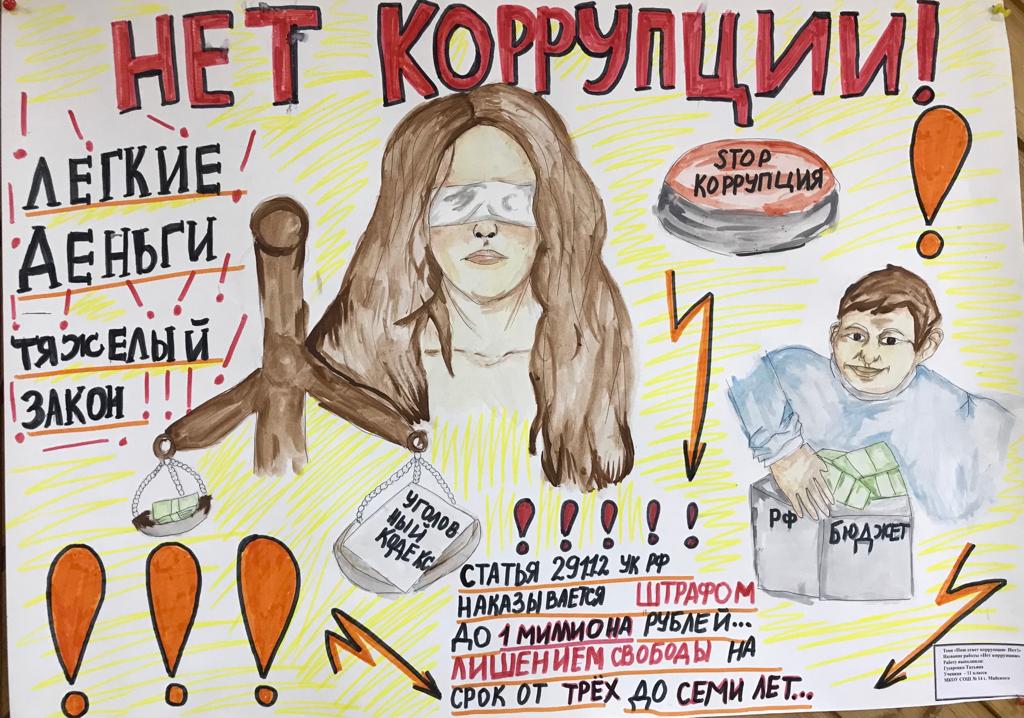 НЕТ КОРРУПЦИИ!
ЛЕГКИЕ
ДЕНЬГИ
ТЯЖЕЛЫЙ
ЗАКОН!!!
STOP
КОРРУПЦИЯ
УГОЛОВ
НЫЙ
КОДЕКС
РФ
БЮДЖЕТ
!!!!!
СТАТЬЯ 29112 УК РФ
НАКАЗЫВЛЕТСЯ ШТРАФОМ
ДО 1 МИМИОНА РУБЛЕЙ...
ЛИШЕНИЕМ СВОБОДЫ НА
СРОК ОТ ТРЁХ ДО СЕМИ ЛЕТ...
!!!
Тема «Наш ответ коррупции- Нет!»
Название работы «Нет коррупции»
Работу выполнила:
Гукаренко Татьяна
Ученица – 11 класса
МКОУ СОШ № 14 г. Майского